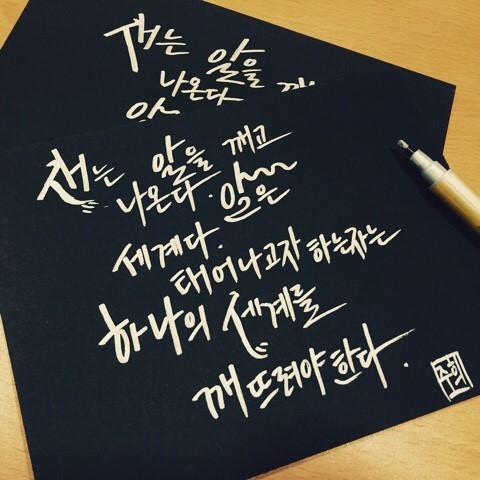 새는 알을
나온다
새는 알을 깨고
나온다. 알은
세계다.
태어나고자 하는자는
하나의 세계를
깨뜨려야 한다.
주희